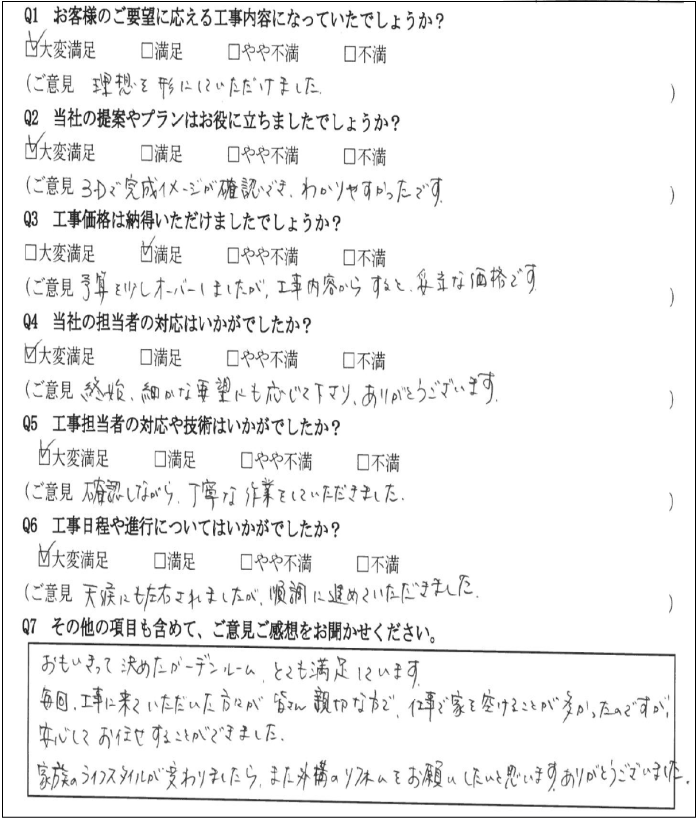 Q1 お客様のご要望に応える工事内容になっていたでしょうか?
☑大変満足 □満足 □やや不満 □不満
(ご意見 理想を形にしていただけました。 )
Q2 当社の提案やプランはお役に立ちましたでしょうか?
☑大変満足 □満足 □やや不満 □不満
(ご意見 3-Dで完成イメージが確認でき、わかりやすかったです。 )
Q3 工事価格は納得いただけましたでしょうか?
□大変満足 ☑満足 □やや不満 □不満
(ご意見 予算を少しオーバーしましたが、工事内容からすると、妥当な価格です )
Q4 当社の担当者の対応はいかがでしたか?
☑大変満足 □満足 □やや不満 □不満
(ご意見 終始、細かな要望にも応じて下さり、ありがとうございます。 )
Q5 工事担当者の対応や技術はいかがでしたか?
☑大変満足 □満足 □やや不満 □不満
(ご意見 確認しながら、丁寧な作業をしていただきました。 )
Q6 工事日程や進行についてはいかがでしたか?
☑大変満足 □満足 □やや不満 □不満
(ご意見 天候にも左右されましたが、順調に進めていただきました。 )
Q7 その他の項目も含めて、ご意見ご感想をお聞かせください。
おもいきって決めたガーデンルーム、とても満足しています。
毎回、工事に来ていただいた方々が皆さん親切な方で、仕事で家を空けることが多かったのですが、
安心してお任せすることができました。
家族のライフスタイルが変わりましたら、また外構のリフォームをお願いしたいと思います。ありがとうございました。